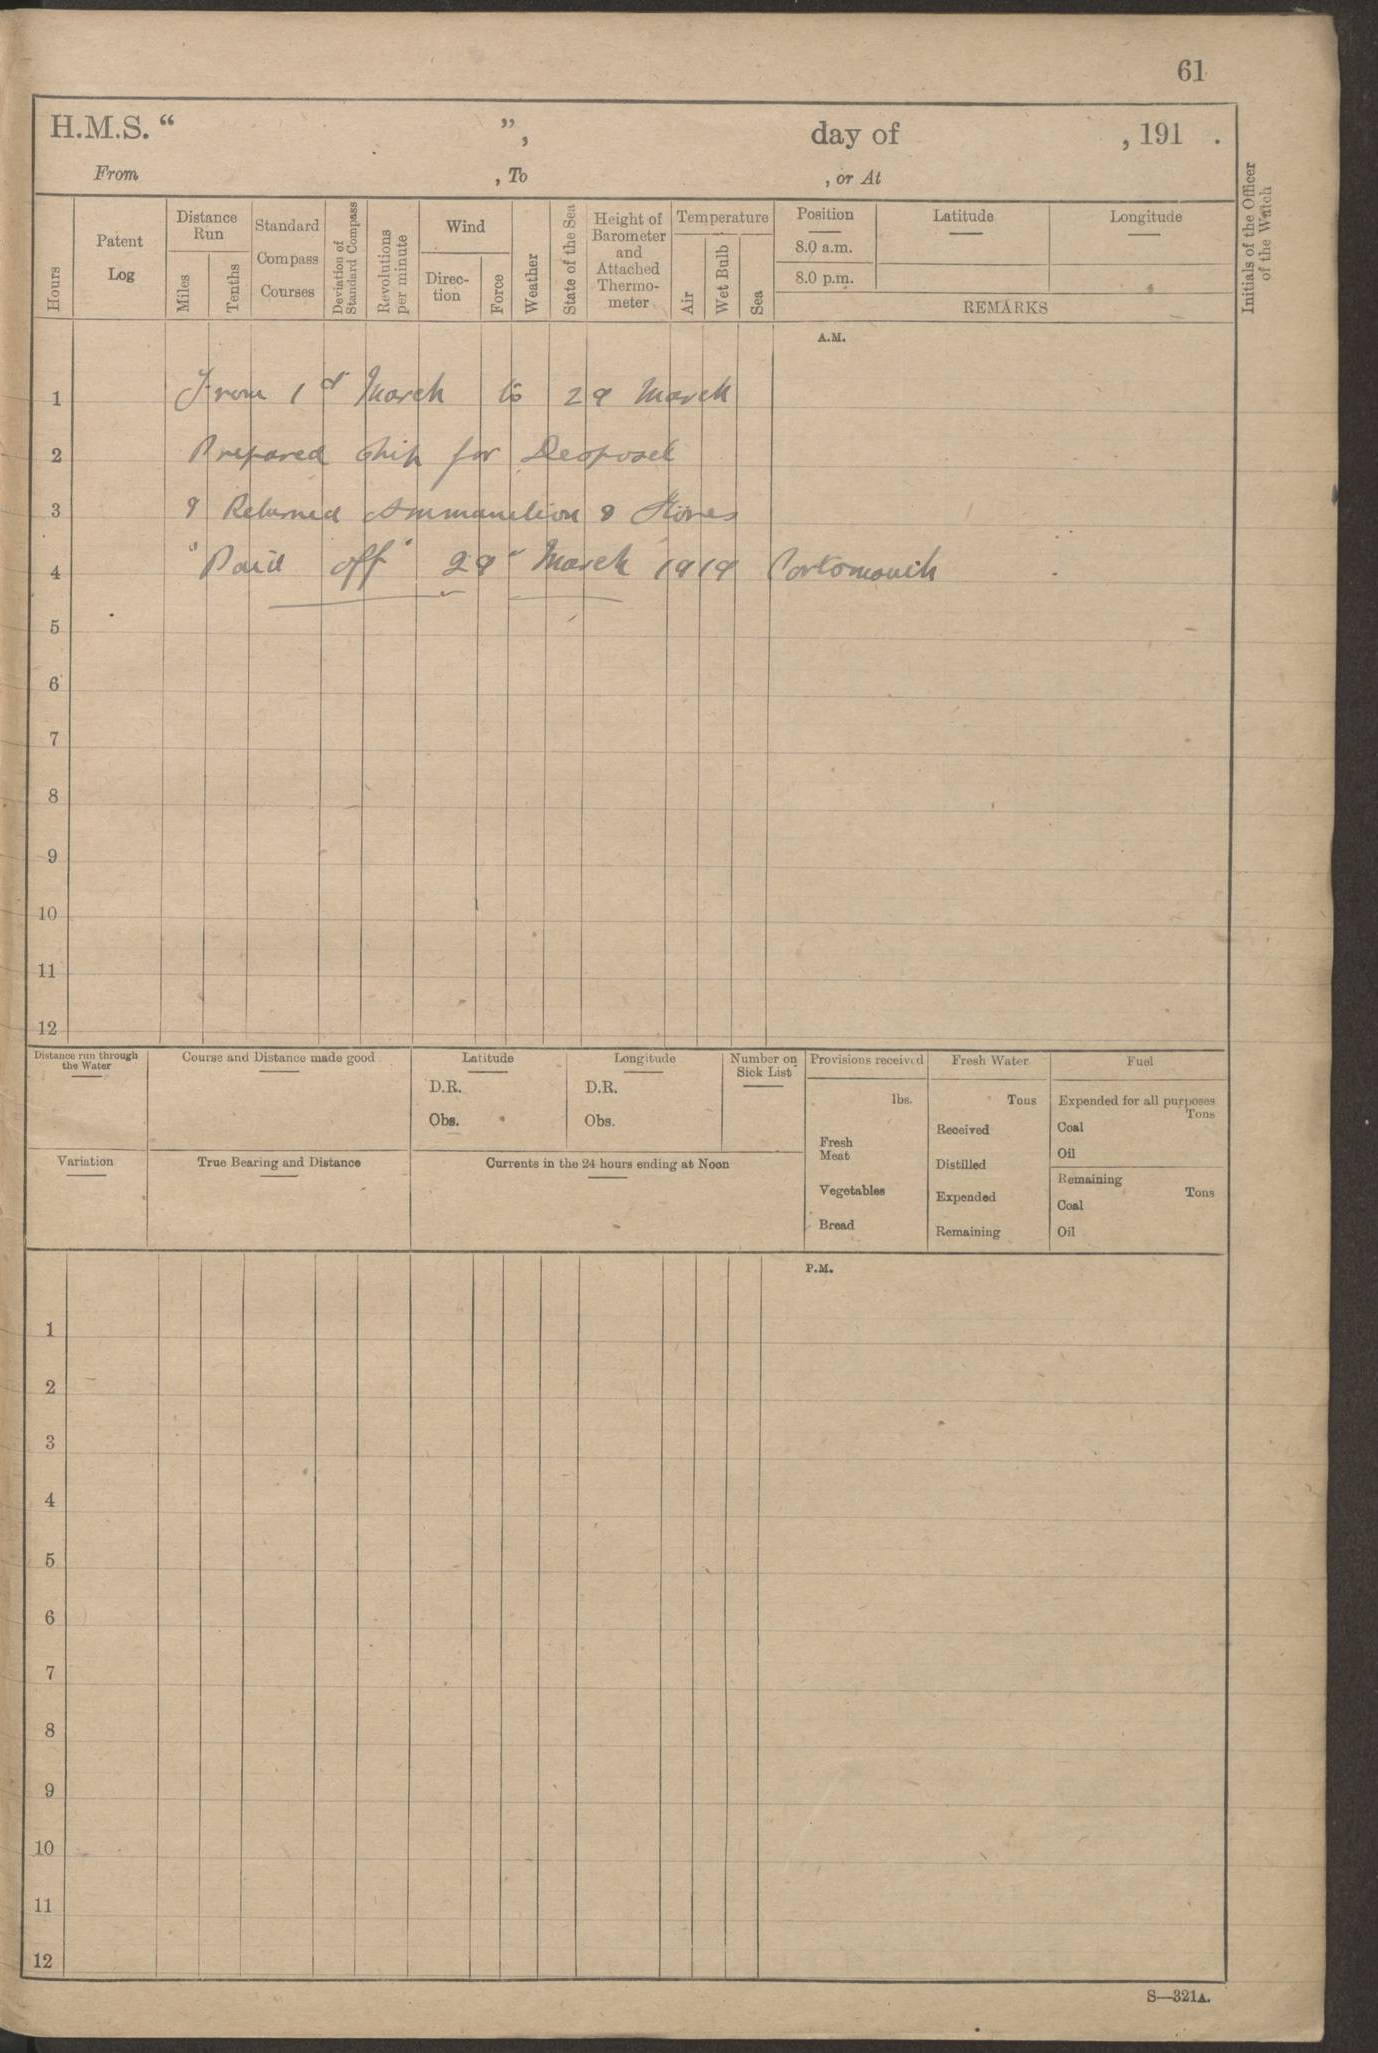 61
H.M.S. “ ”, day of , 191 .
From , To , or At
Initials of the Officer of the Watch
Hours
Patent Log
Distance Run
Miles
Tenths
Standard Compass Courses
Deviation of Standard Compass
Revolutions per minute
Wind
Direc-tion
Force
Weather
State of the Sea
Height of Barometer and Attached Thermo-meter
Temperature
Air
Wet Bulb
Sea
Position
8.0 a.m.
8.0 p.m.
Latitude
Longitude
REMARKS
A.M.
1 From 1st March to 29 March
2 Prepared ship for Disposal
3 & Returned Ammunition & Stores
4 "Paid off" 29" March 1919 Portsmouth
5
6
7
8
9
10
11
12
Distance run through the Water
Course and Distance made good
Latitude
D.R.
Obs.
Longitude
D.R.
Obs.
Number on Sick List
Provisions received
lbs.
Fresh Meat
Vegetables
Bread
Fresh Water
Tons
Received
Distilled
Expended
Remaining
Fuel
Expended for all purposes
Tons
Coal
Oil
Remaining
Tons
Coal
Oil
Variation
True Bearing and Distance
Currents in the 24 hours ending at Noon
P.M.
1
2
3
4
5
6
7
8
9
10
11
12
S—321A.